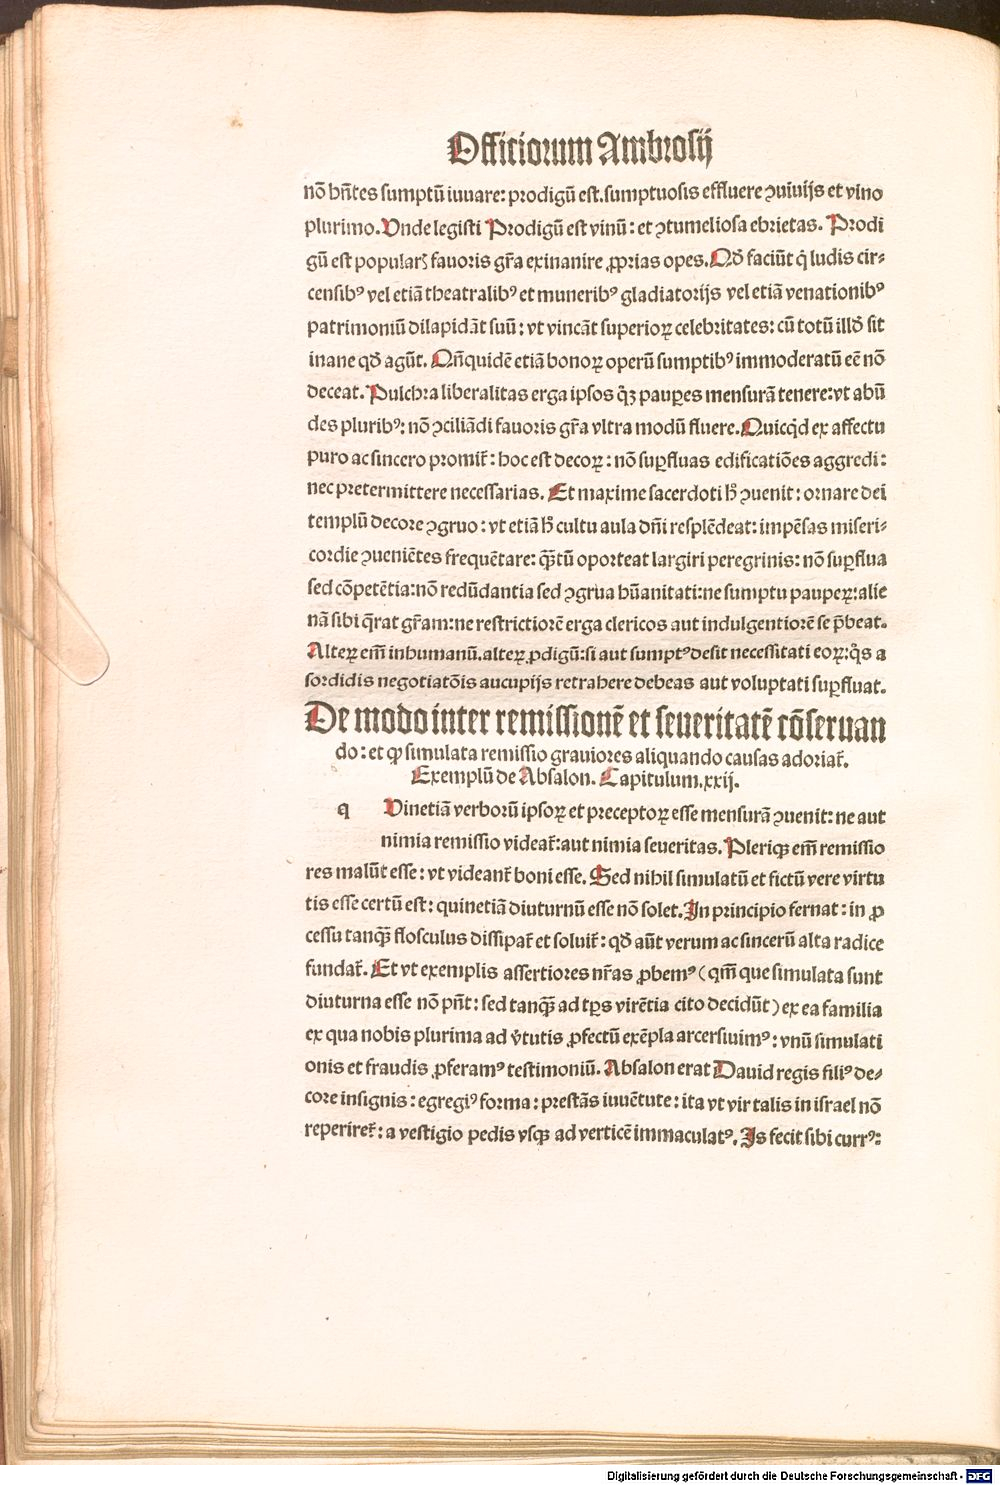 Officiorum Ambrosij
nō hn̄tes sumptū iuuare: prodigū est. sumptuosis effluere ꝯuiuijs et vino
plurimo. Vnde legisti Prodigū est vinū: et ꝯtumeliosa ebrietas. Prodi
gū est popularꝭ fauoris gr̄a exinanire ꝓprias opes. Qd̄ faciūt q̇ ludis cir-
censibꝰ vel etiā theatralibꝰ et muneribꝰ gladiatorijs vel etiā venationibꝰ
patrimoniū dilapidāt suū: vt vincāt superioꝝ celebritates: cū totū illd̄ sit
inane qd̄ agūt. Qn̄quidē etiā bonoꝝ operū sumptibꝰ immoderatū eē nō
deceat. Pulchra liberalitas erga ipsos q̄ꝫ pauꝑes mensurā tenere: vt abū
des pluribꝰ: nō ꝯciliādi fauoris gr̄a vltra modū fluere. Quicq̇d ex affectu
puro ac sincero promit᷑: hoc est decoꝝ: nō suꝑfluas edificatiōes aggredi:
nec pretermittere necessarias. Et maxime sacerdoti h̄ ꝯuenit: ornare dei
templū decore ꝯgruo: vt etiā h̄ cultu aula dn̄i resplēdeat: impēsas miseri-
cordie ꝯueniētes frequētare: q̄ꝫtū oporteat largiri peregrinis: nō suꝑflua
sed cōpetētia: nō redūdantia sed ꝯgrua hūanitati: ne sumptu paupeꝝ: alie
nā sibi q̄rat gr̄am: ne restrictiorē erga clericos aut indulgentiorē se p̄beat.
Alteꝝ em̄ inhumanū. alteꝝ ꝓdigū: si aut sumptꝰ desit necessitati eoꝝ: q̄s a
sordidis negotiatōis aucupijs retrahere debeas aut voluptati suꝑfluat.
De modo inter remissionē et seueritatē cōseruan
do: et ꝙ simulata remissio grauiores aliquando causas adoriat᷑.
Exemplū de Absalon. Capitulum. xxij.
q Vinetiā verborū ipsoꝝ et preceptoꝝ esse mensurā ꝯuenit: ne aut
nimia remissio videat᷑: aut nimia seueritas. Pleriqꝫ em̄ remissio
res malūt esse: vt videant᷑ boni esse. Sed nihil simulatū et fictū vere virtu
tis esse certū est: quinetiā diuturnū esse nō solet. In principio fernat: in ꝓ
cessu tanqꝫ flosculus dissipat᷑ et soluit᷑: qd̄ aūt verum ac sincerū alta radice
fundat᷑. Et vt exemplis assertiores nr̄as ꝓbemꝰ (qm̄ que simulata sunt
diuturna esse nō pn̄t: sed tanqꝫ ad tꝑs virētia cito decidūt) ex ea familia
ex qua nobis plurima ad v̄tutis ꝓfectū exēpla arcersiuimꝰ: vnū simulati
onis et fraudis ꝓferamꝰ testimoniū. Absalon erat Dauid regis filiꝰ de-
core insignis: egregiꝰ forma: prestās iuuētute: ita vt vir talis in israel nō
reperiret᷑: a vestigio pedis vsqꝫ ad verticē immaculatꝰ. Is fecit sibi currꝰ:
Digitalisierung gefördert durch die Deutsche Forschungsgemeinschaft - DFG